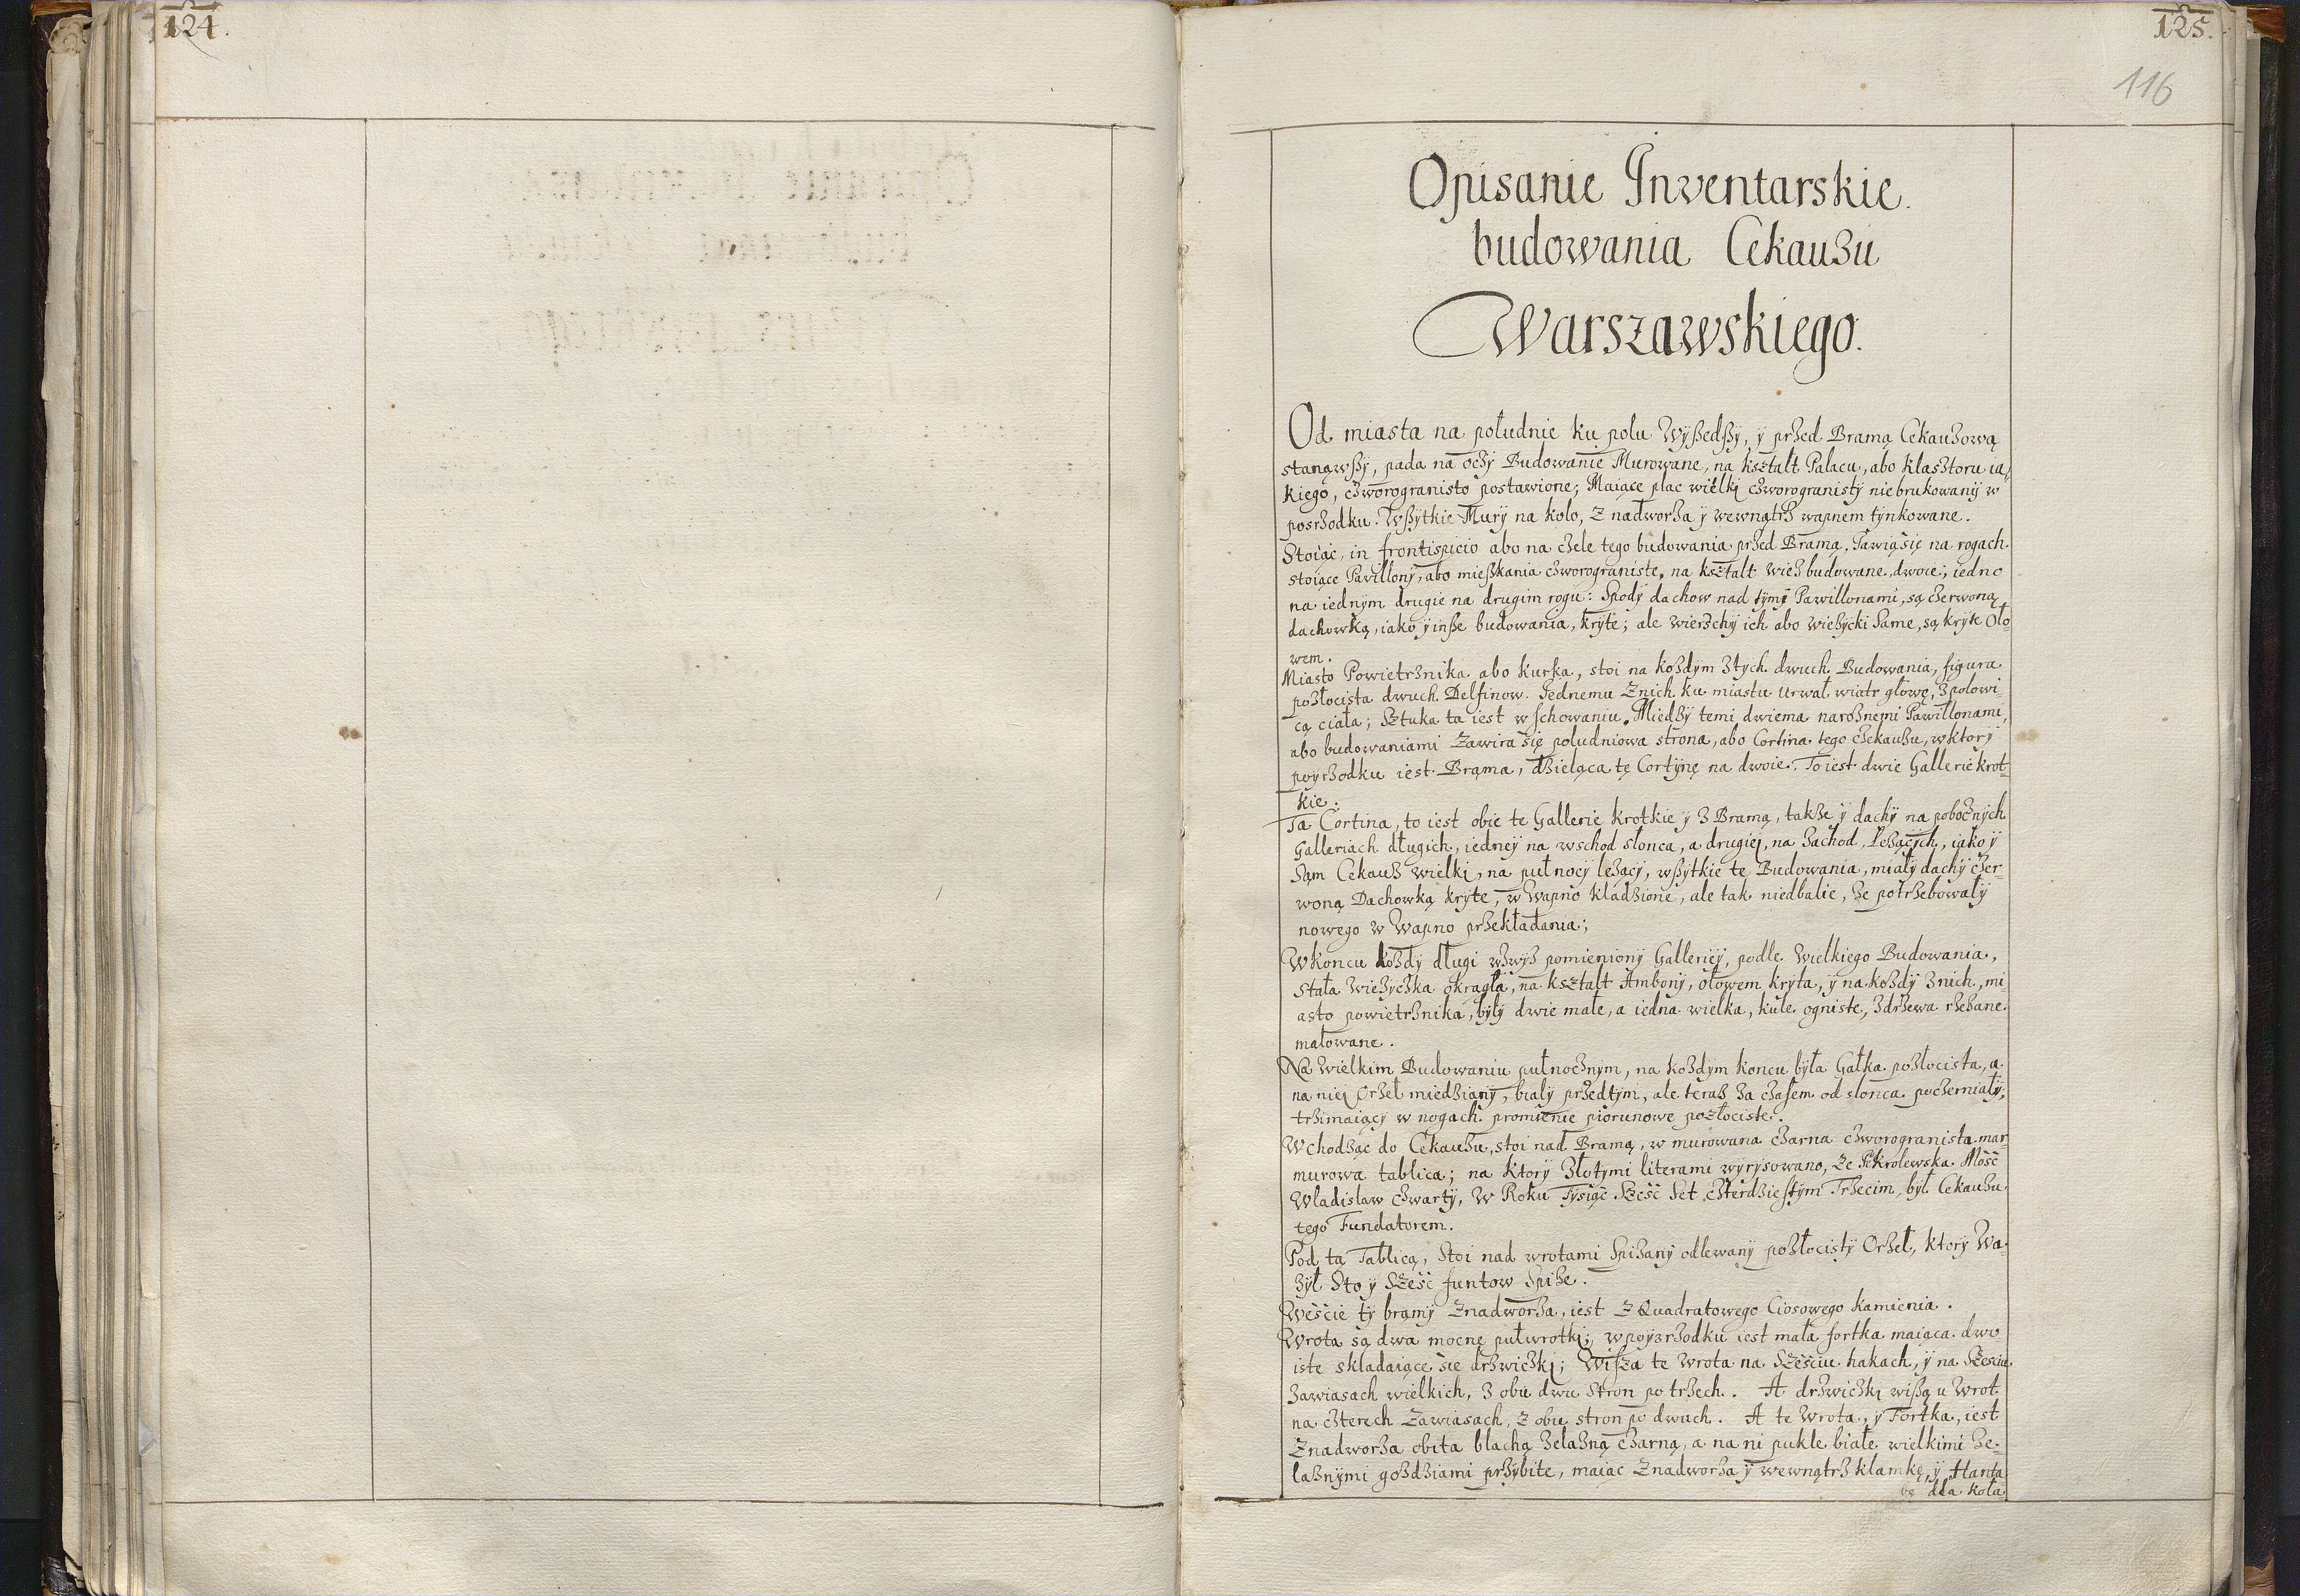 124.
125.
116
Opisanie Inventarskie.
budowania Cekauzu
Warszawskiego.
Od miasta na południe ku polu Wyßedßy, y przed Bramą Cekauzową
stanąwßy, pada na oczy Budowanie Murowane, na kształt Palacu, abo klasztoru ia-
kiego, czworogranisto postawione; Maiące plac wielki czworogranisty niebrukowany w
poszrodku. Wßytkie Mury na kolo, z nadworza y wewnątrz wapnem tynkowane.
Stoiąc, in frontispicio abo na czele tego budowania przed Bramą, Iawią się na rogach
stoiące Pavillony, abo mießkania czworograniste, na kształt wież budowane, dwoie; iedno
na iednym drugie na drugim rogu: Spody dachow nad tymi Pawillonami, są czerwoną
dachowką, iako y inße budowania, kryte; ale wierzchy ich abo wieżycki same, są kryte Oło-
wem.
Miasto Powietrznika abo kurka, stoi na kożdym z tych dwuch Budowania, figura
pozłocista dwuch Delfinow. Jednemu z nich ku miastu urwał wiatr głowę, z połowi-
cą ciała; Sztuka ta iest w schowaniu. Miedzy temi dwiema narożnemi Pawillonami,
abo budowaniami zawira się południowa strona, abo Cortina tego Czekauzu, w ktory
poyrzodku iest Brama, dzieląca tę Cortynę na dwoie. To iest dwie Gallerie krot-
kie.
Ta Cortina, to iest obie te Gallerie krotkie y z Bramą, także y dachy na pobocznych
Galleriach długich, iedney na wschod słonca, a drugiej, na zachod, Leżących, iako y
sąm Cekauz wielki, na pułnocy leżący, wßytkie te Budowania, miały dachy czer-
woną Dachowką kryte, w wapno kładzione, ale tak niedbalie, że potrzebowały
nowego w Wapno przekładania;
W koncu kożdy długi wzwyż pomieniony Galleriey, podle Wielkiego Budowania,
stała Wieżyczka okrągła, na kształt Ambony, ołowem kryta, y na kożdy z nich, mi-
asto powietrznika, były dwie małe, a iedna wielka, kule ogniste, z drzewa rżezane
malowane.
Na Wielkim Budowaniu pułnocznym, na kożdym koncu była Gałka pozłocista, a
na niej Orzeł miedziany, biały przedtym, ale teraz za czasem od słonca poczerniały,
trzimaiący w nogach promienie piorunowe pozłociste.
Wchodząc do Cekauzu, stoi nad Bramą, w murowana czarna czworogranista mar-
murowa tablica; na ktory złotymi literami wyrysowano, że Ie krolewska Mość
Wladislaw czwarty, w Roku Tysiąc Szesć Set czterdziestym Trzecim, był Cekauzu
tego Fundatorem.
Pod tą Tablicą, Stoi nad wrotami Spiżany odlewany pozłocisty Orzeł, ktory Wa-
żył Sto y Szesć funtow Spiże.
Weście ty bramy z nadworza, iest z Quadratowego Ciosowego kamienia.
Wrota są dwa mocne pułwrotki; w poyszrzodku iest mała fortka maiąca dwo-
iste składaiące sie drzwiczki; Wiszą te wrota na Szesciu hakach, y na Szesciu
zawiasach wielkich, z obu dwu Stron po trzech. A drzwiczki wißą u Wrot
na czterech zawiasach, z obu stron po dwuch. A te Wrota, y Fortka, iest
z nadworza obita blachą żelazną czarną, a na ni pukle białe wielkimi że-
laznymi gozdziami przybite, maiąc z nadworza y wewnątrz klamkę, y Hanta
bę dla koła